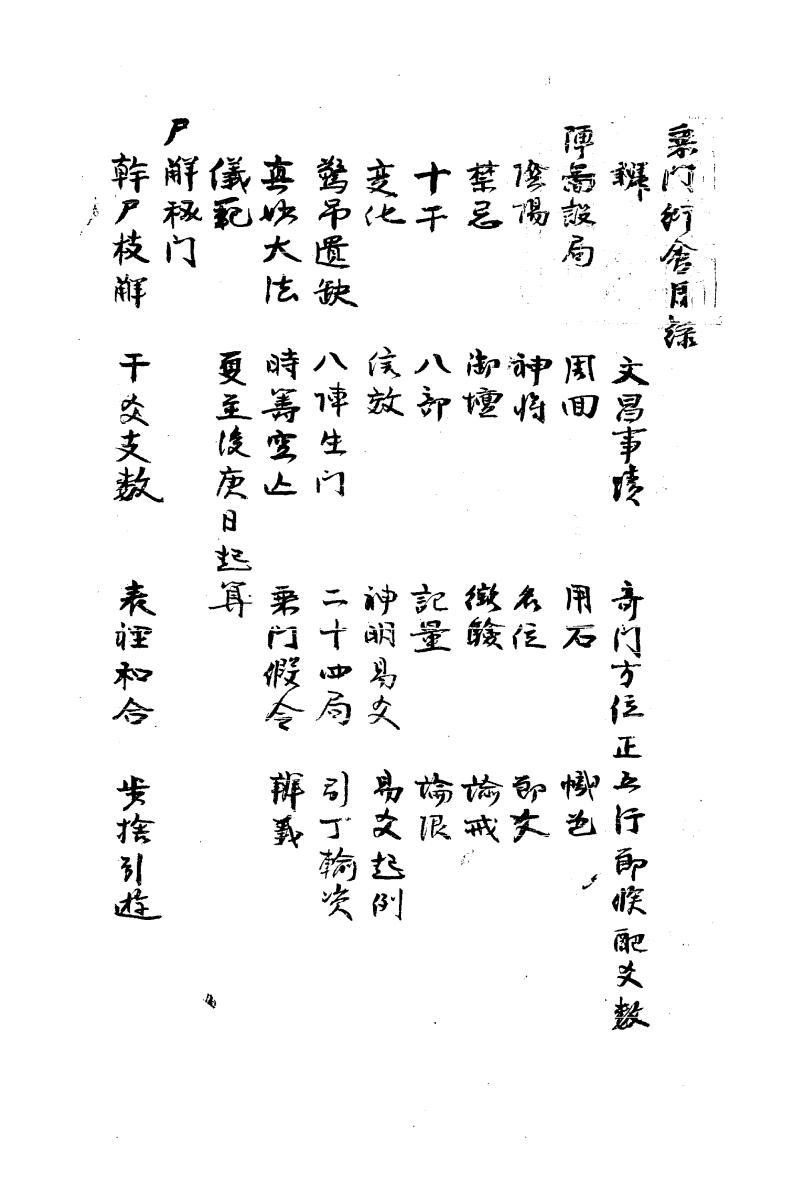 乘门衍舍目録
辯 文昌事蹟 奇门方位正五行節候配爻数
陣啚設局 周回 用石 幟色
陰陽 神将 名位 節爻
禁忌 御壇 徵験 諭戒
十干 八部 記量 論限
变化 信效 神明易爻 易爻起例
驚吊置缺 八陣生门 二十四局 引丁輪次
真妙大法 時籌空亾 乘门假令 辯義
儀範 夏至後庚日起算
尸解秘门
幹尸枝解 干爻支数 表裡和合 步捨引遊